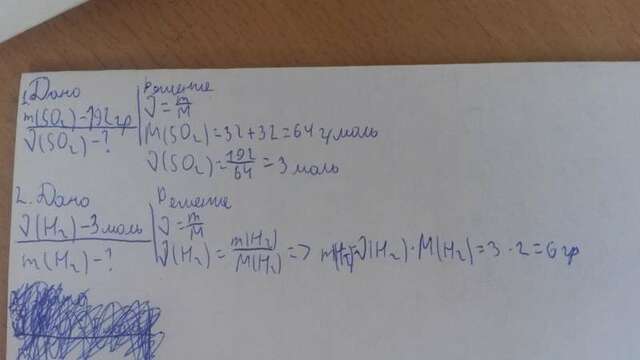 1. Дано
m(SO₂)-192 гр
ν(SO₂)-?
Решение
ν = m/M
M(SO₂)=32+32=64 г/моль
ν(SO₂)=192/64=3 моль
2. Дано
ν(H₂)-3 моль
m(H₂)-?
Решение
ν = m/M
ν(H₂)=m(H₂)/M(H₂) => ν(H₂)·M(H₂)=3·2=6 гр